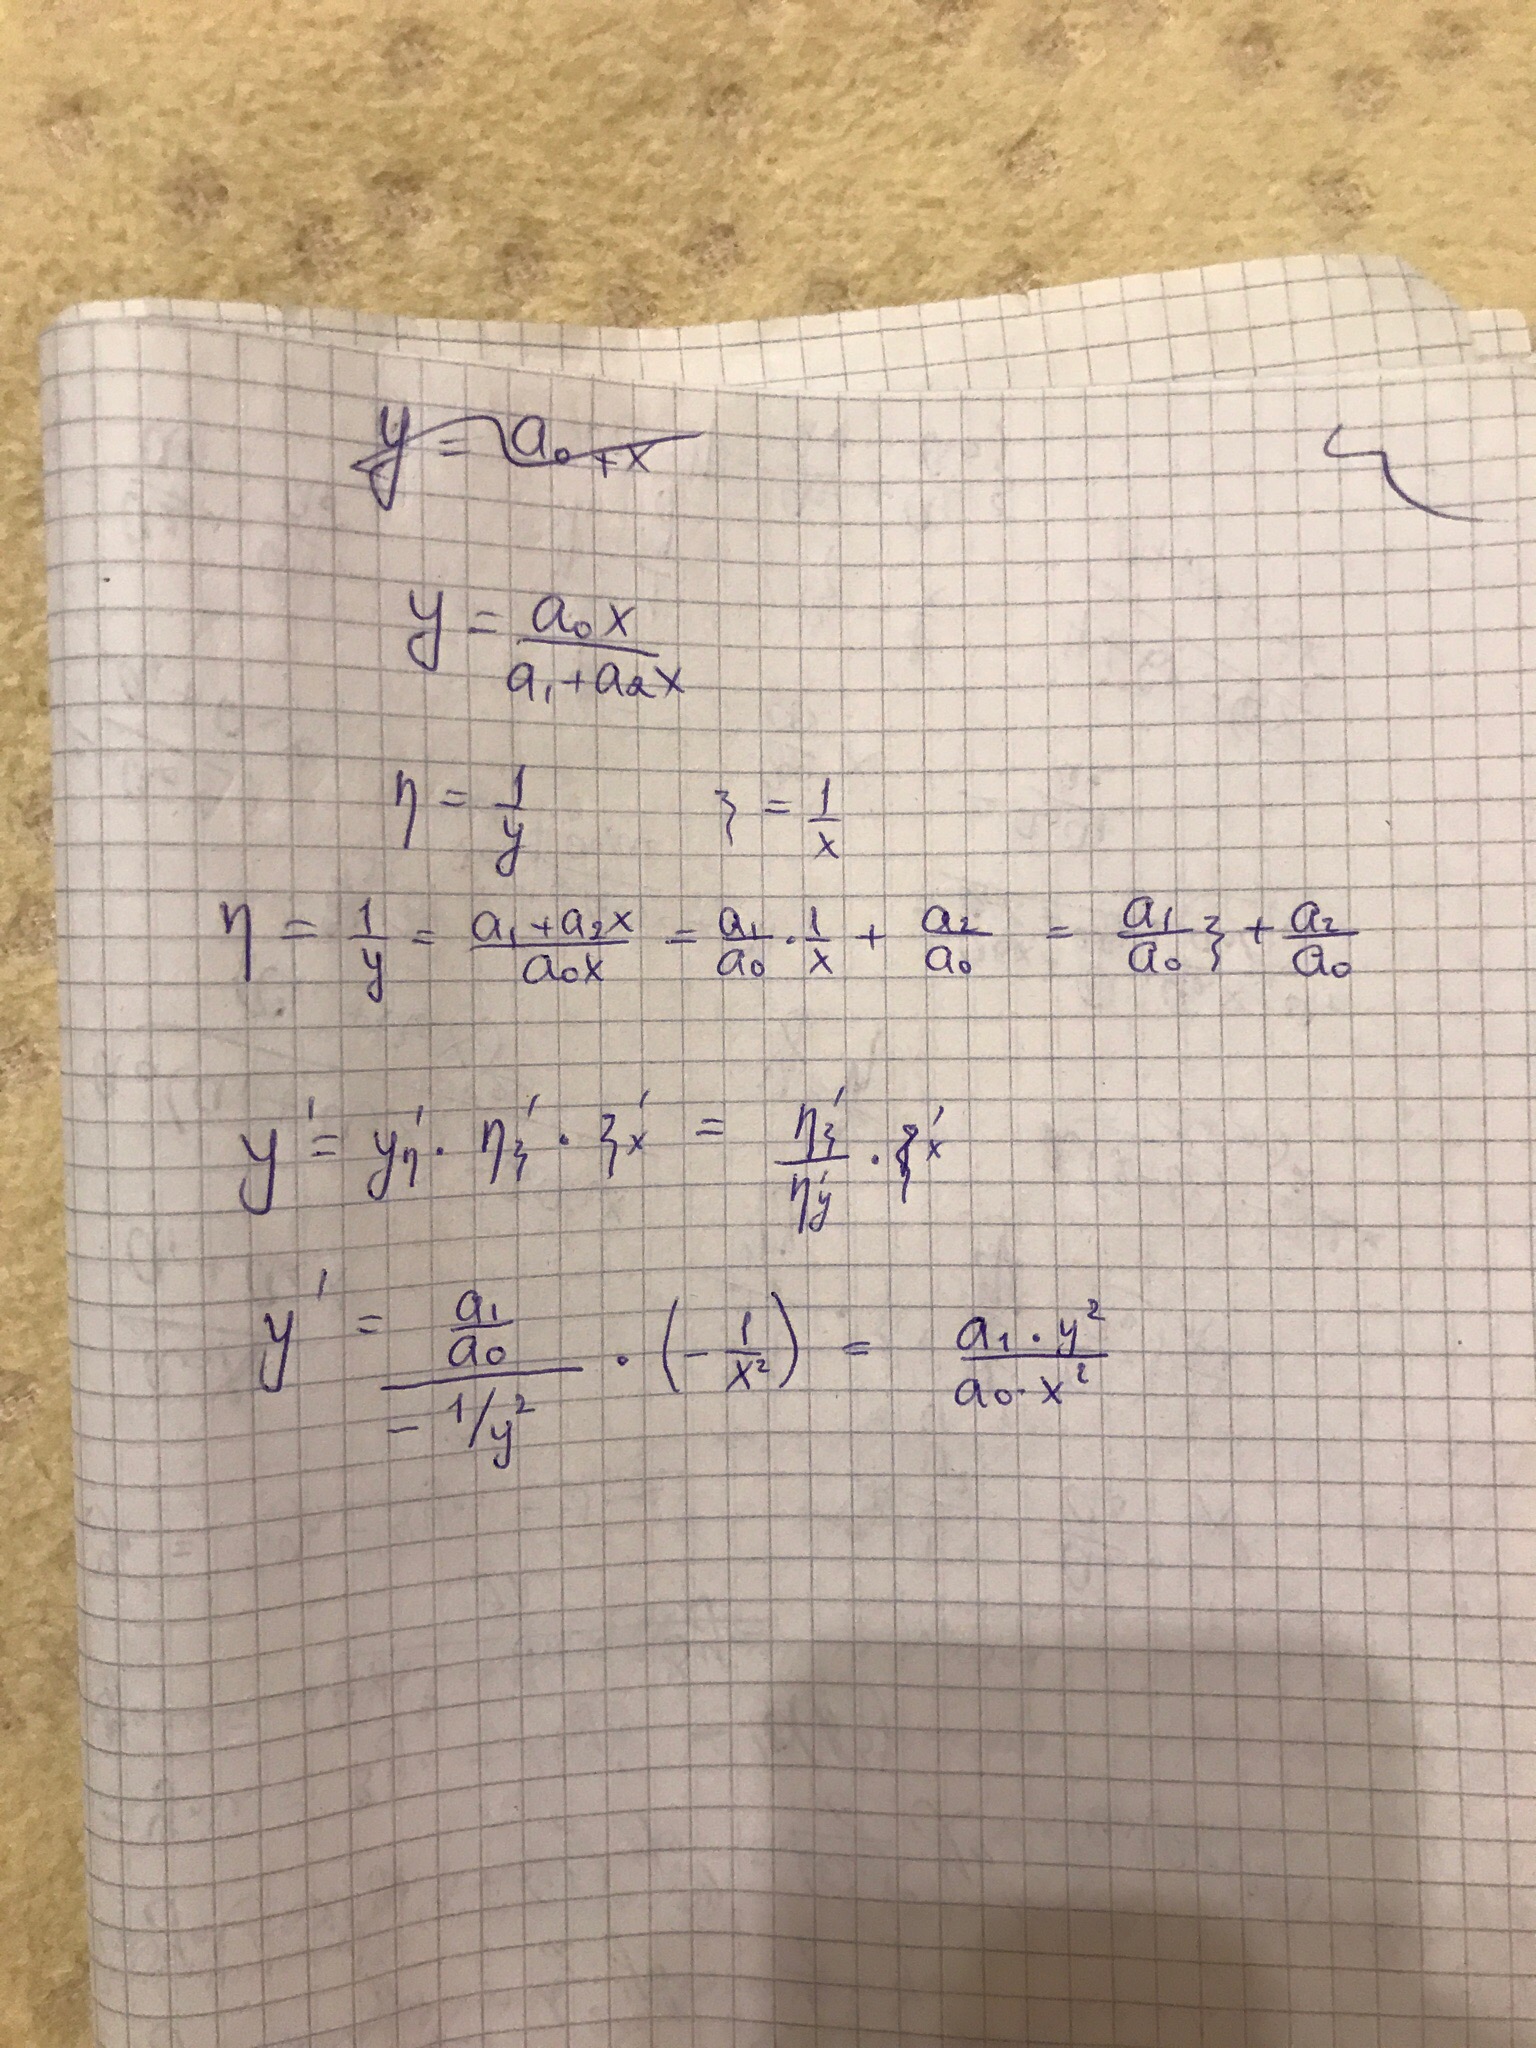 y = a₀ + x
y = a₀x / (a₁ + a₂x)
η = 1/y    ξ = 1/x
η = 1/y = (a₁ + a₂x) / (a₀x) = a₁/a₀ · 1/x + a₂/a₀ = a₁/a₀ ξ + a₂/a₀
y' = y'η · η'ξ · ξ'x = η'ξ / η'y · ξ'x
y' = (a₁/a₀) / (- 1/y²) · (- 1/x²) = (a₁ · y²) / (a₀ · x²)